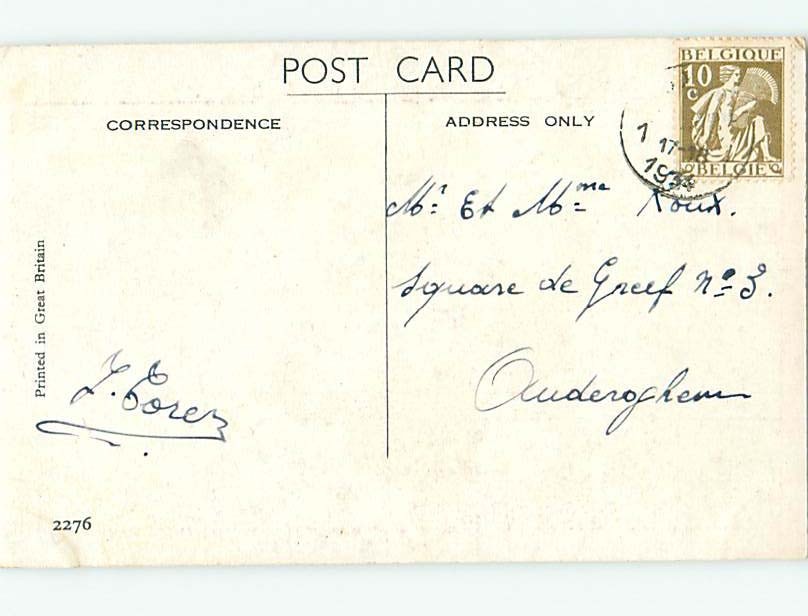 POST CARD
CORRESPONDENCE
ADDRESS ONLY
BELGIQUE
10
c
BELGIË
1 17-18
1934
Mr. Et Mme Roux.
Square de Greef No 3.
Auderghem
Printed in Great Britain
2276